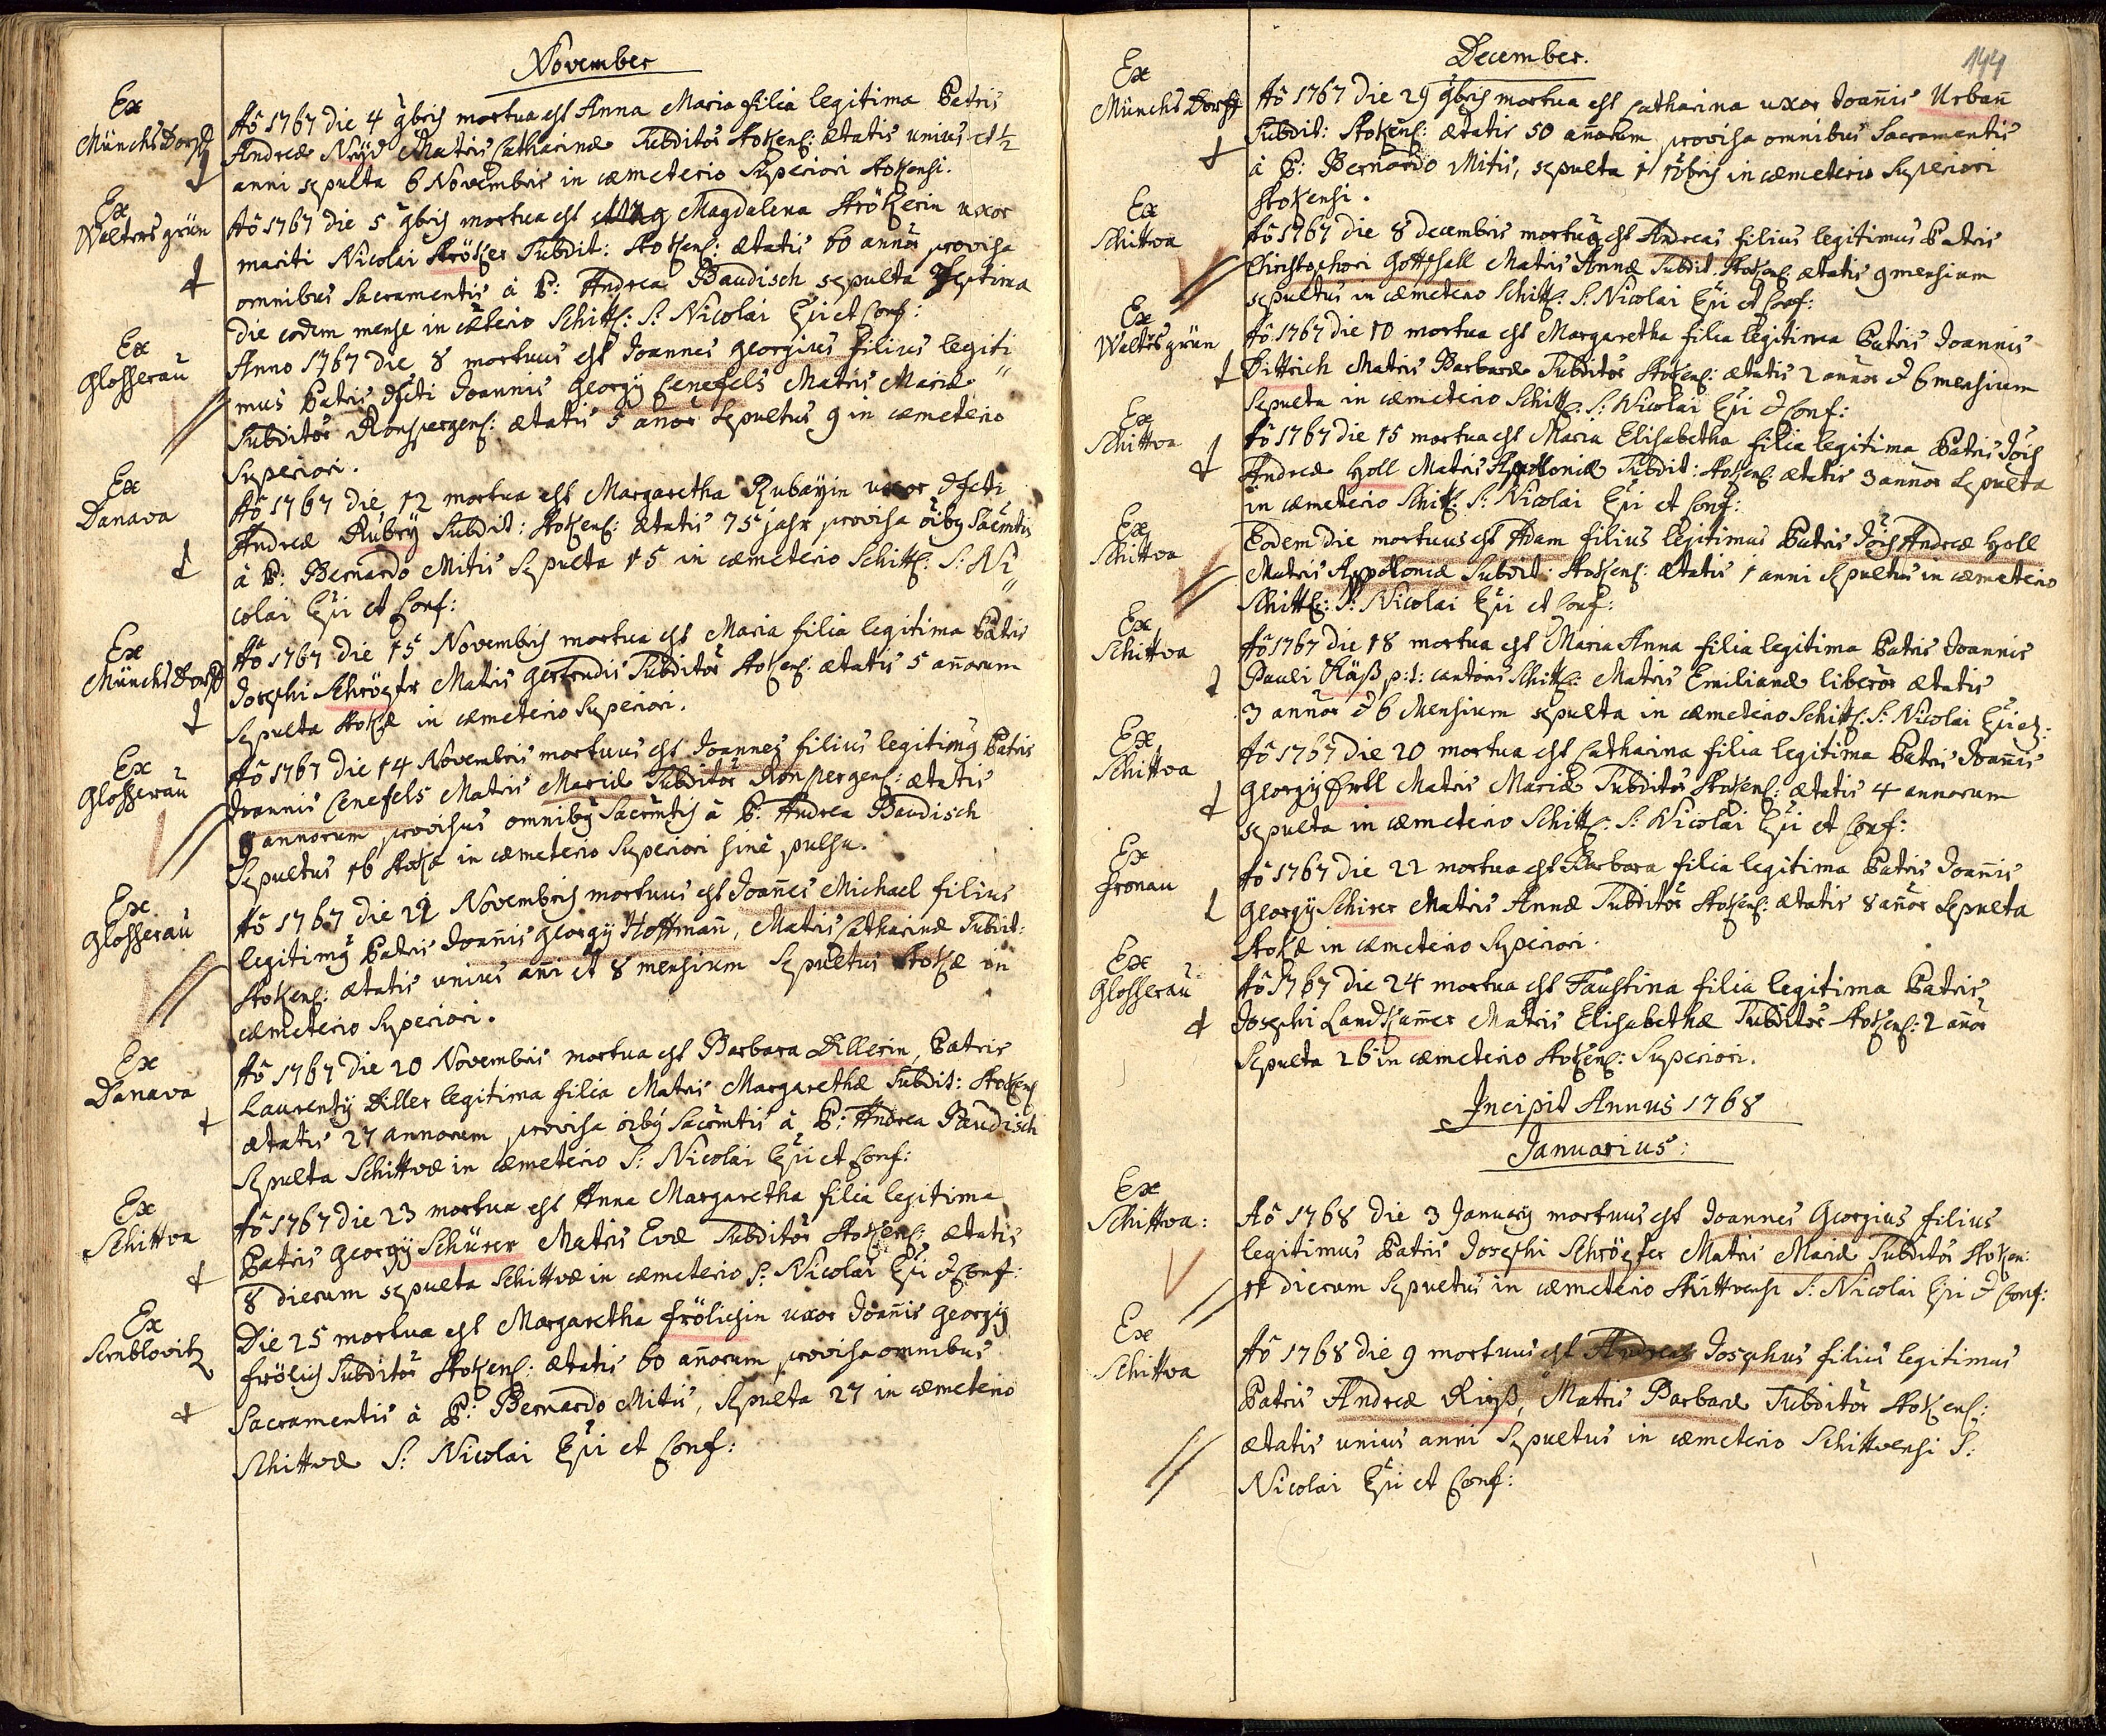 November
Ex
Münchsdorff
Aõ 1767 die 4 9bris mortua est Anna Maria filia legitima Patris
Andreæ Matris Catharinæ Subditor Stokens: ætatis unius et ½
anni sepulta 6 Novembris in cæmeterio Superiori Stokensi.
Ex
Waltersgrün
Aõ 1767 die 5 9bris mortua est Magdalena Strökerin uxor
mariti Nicolai Ströker Subdit: Stokens: ætatis 60 annor provisa
omnibus Sacramentis à P: Andrea Baudisch sepulta Septima
die eodem mense in cæterio Schitt: S: Nicolai Epi et Conf:
Ex
Glosserau
Anno 1767 die 8 mortuus est Joannes Georgius filius legiti
mus Patris Joannis Georgÿ Cenefels Matris Mariæ
Subditor Ronspergens: ætatis 5 anor Sepultus 9 in cæmeterio
Superiori.
Ex
Danava
Aõ 1767 die 12 mortua est Margaretha Rubaÿin uxor
Andreæ Rubeÿ Subdit: Stokens: ætatis 75 jahr provisa oibg Sacmtis
à P: Bernardo Mitis Sepulta 15 in cæmeterio Schitt: S: Ni
colai Epi et Conf:
Ex
Münchsdorff
Aõ 1767 die 15 Novembris mortua est Maria filia legitima Patris
Josephi Schröpfer Matris Gertrudis Subditor Stokens: ætatis 5 anorum
Sepulta Stokæ in cæmeterio Superiori.
Ex
Glosserau
Aõ 1767 die 14 Novembris mortuus est Joannes filius legitimg Patris
Joannis Cenefels Matris Mariæ Subditor Ronspergens: ætatis
9 annorum provisus omnibg Sacrmtis à P: Andrea Baudisch
Sepultus 16 Stokæ in cæmeterio Superiori sine pulsu.
Ex
Glosserau
Aõ 1767 die Novembris mortuus est Joañes Michael filius
legitimg Patris Joañis Georgÿ Hoffmañ, Matris Catharinæ Subdit:
Stokens: ætatis unius ani et 8 mensium Sepultus Stokæ in
cæmeterio Superiori.
Ex
Danava
Aõ 1767 die 20 Novembris mortua est Barbara Dillerin, Patris
Laurentÿ Diller legitima filia Matris Margarethæ Subdit: Stokens
ætatis 27 annorum provisa oibg Sacrmtis à P: Andrea Baudisch
Sepulta Schittvæ in cæmeterio S: Nicolai Epi et Conf:
Ex
Schittva
Aõ 1767 die 23 mortua est Anna Margaretha filia legitima
Patris Georgÿ Schürer Matris Evæ Subditor Stokens: ætatis
8 dierum sepulta Schittvæ in cæmeterio S: Nicolai Epi & Conf:
Ex
Sernblovitz
Die 25 mortua est Margaretha Frölichin uxor Joañis Georgÿ
Frölich Subditor Stokens: ætatis 60 añorum provisa omnibus
Sacramentis à P: Bernardo Mitis, Sepulta 27 in cæmeterio
Schittvæ S: Nicolai Epi et Conf:
December.
144
Ex
Münchsdorff
Aõ 1767 die 29 9bris mortua est Catharina uxor Joañis Urbañ
Subdit: Stokens: ætatis 50 añorum provisa omnibus Sacramentis
à P: Bernardo Mitis, sepulta 1 10bris in cæmeterio Superiori
Stokensi.
Ex
Schittva
Aõ 1767 die 8 decembris mortug est Andreas filius legitimus Patris
Christophori Gottshall Matris Annæ Subdit. Stokens. ætatis 9 mensium
sepultus in cæmeterio Schitt: S: Nicolai Epi et Conf:
Ex
Waltrsgrün
Aõ 1767 die 10 mortua est Margaretha filia legitima Patris Joannis
Dittrich Matris Barbaræ Subditor Stokens: ætatis 2 annor & 6 mensium
Sepulta in cæmeterio Schitt: S: Nicolai Epi & Conf:
Ex
Schittva
Aõ 1767 die 15 mortua est Maria Elisabetha filia legitima Patris Jois
Andreæ Holl Matris Apolloniæ Subdit: Stokens: ætatis 3 annor Sepulta
in cæmeterio Schitt: S: Nicolai Epi et Conf:
Ex
Schittva
Eodem die mortuus est Adam filius legitimus Patris Jois Andreæ Holl
Matris Appoloniæ Subdit: Stokens: ætatis 1 anni Sepultus in cæmeterio
Schitt: S: Nicolai Epi et Conf:
Ex
Schittva
Aõ 1767 die 18 mortua est Maria Anna filia legitima Patris Joannis
Pauli Räß p:t: cantoris Schitt: Matris Emilianæ liberor ætatis
3 annor & 6 Mensium sepulta in cæmeterio Schitt. S: Nicolai Epi et
Ex
Schittva
Aõ 1767 die 20 mortua est Catharina filia legitima Patris Joañis
Georgÿ Matris Mariæ Subditor Stokens: ætatis 4 annorum
sepulta in cæmeterio Schitt: S: Nicolai Epi et Conf:
Ex
Gronau
Aõ 1767 die 22 mortua est Barbara filia legitima Patris Joañis
Georgÿ Schirer Matris Annæ Subditor Stokens: ætatis 8 añor Sepulta
Stokæ in cæmeterio Superiori.
Ex
Glosserau
Aõ 1767 die 24 mortua est Faustina filia legitima Patris
Josephi Landkamer Matris Elisabethæ Subditor Stokens: 2 añor
Sepulta 26 in cæmeterio Stokens: Superiori.
Incipit Annus 1768
Januarius:
Ex
Schittva:
Aõ 1768 die 3 Januarÿ mortuus est Joannes Georgius filius
legitimus Patris Josephi Schröpfer Matris Mariæ Subditor Stoken:
11 dierum Sepultus in cæmeterio Schittvensi S: Nicolai Epi & Conf:
Ex
Schittva
Aõ 1768 die 9 mortuus est Andreas Josephus filius legitimus
Patris Andreæ Rieß, Matris Barbaræ Subditor Stokens:
ætatis unius anni Sepultus in cæmeterio Schittvensi S:
Nicolai Epi et Conf: